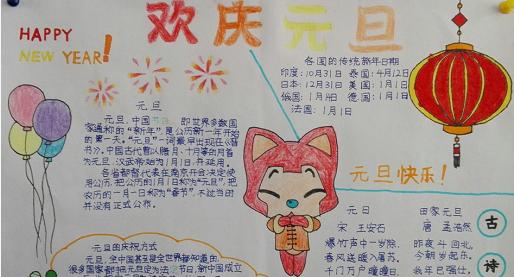 欢庆元旦
HAPPY
NEW YEAR!
各国的传统新年日期
印度:10月31日 泰国:4月12日
日本:12月31日 美国:1月1日
俄国:1月14日 德国:1月1日
法国:1月1日
元旦
元旦,中国节日,即世界多数国
家通称的“新年”,是公历新一年开始
的第一天。“元旦”一词最早出现在《晋
书》。中国古代曾以腊月、十月等的月首
为元旦,汉武帝始为1月1日,并延用。
各省都督代表在南京开会决定使
用公历,把公历的1月1日称为“元旦”,把
农历的一月一日称为“春节”,不过当时
并没有正式公布。
元旦快乐!
元日
宋 王安石
爆竹声中一岁除,
春风送暖入屠苏,
千门万户曈曈日
田家元旦
唐 孟浩然
昨夜斗回北,
今朝岁起东,
我年已强仕,
古诗
元旦的庆祝方式
元旦,是中国甚至是全世界都知道的,
很多国家都把元旦定为法定节日,新中国成立